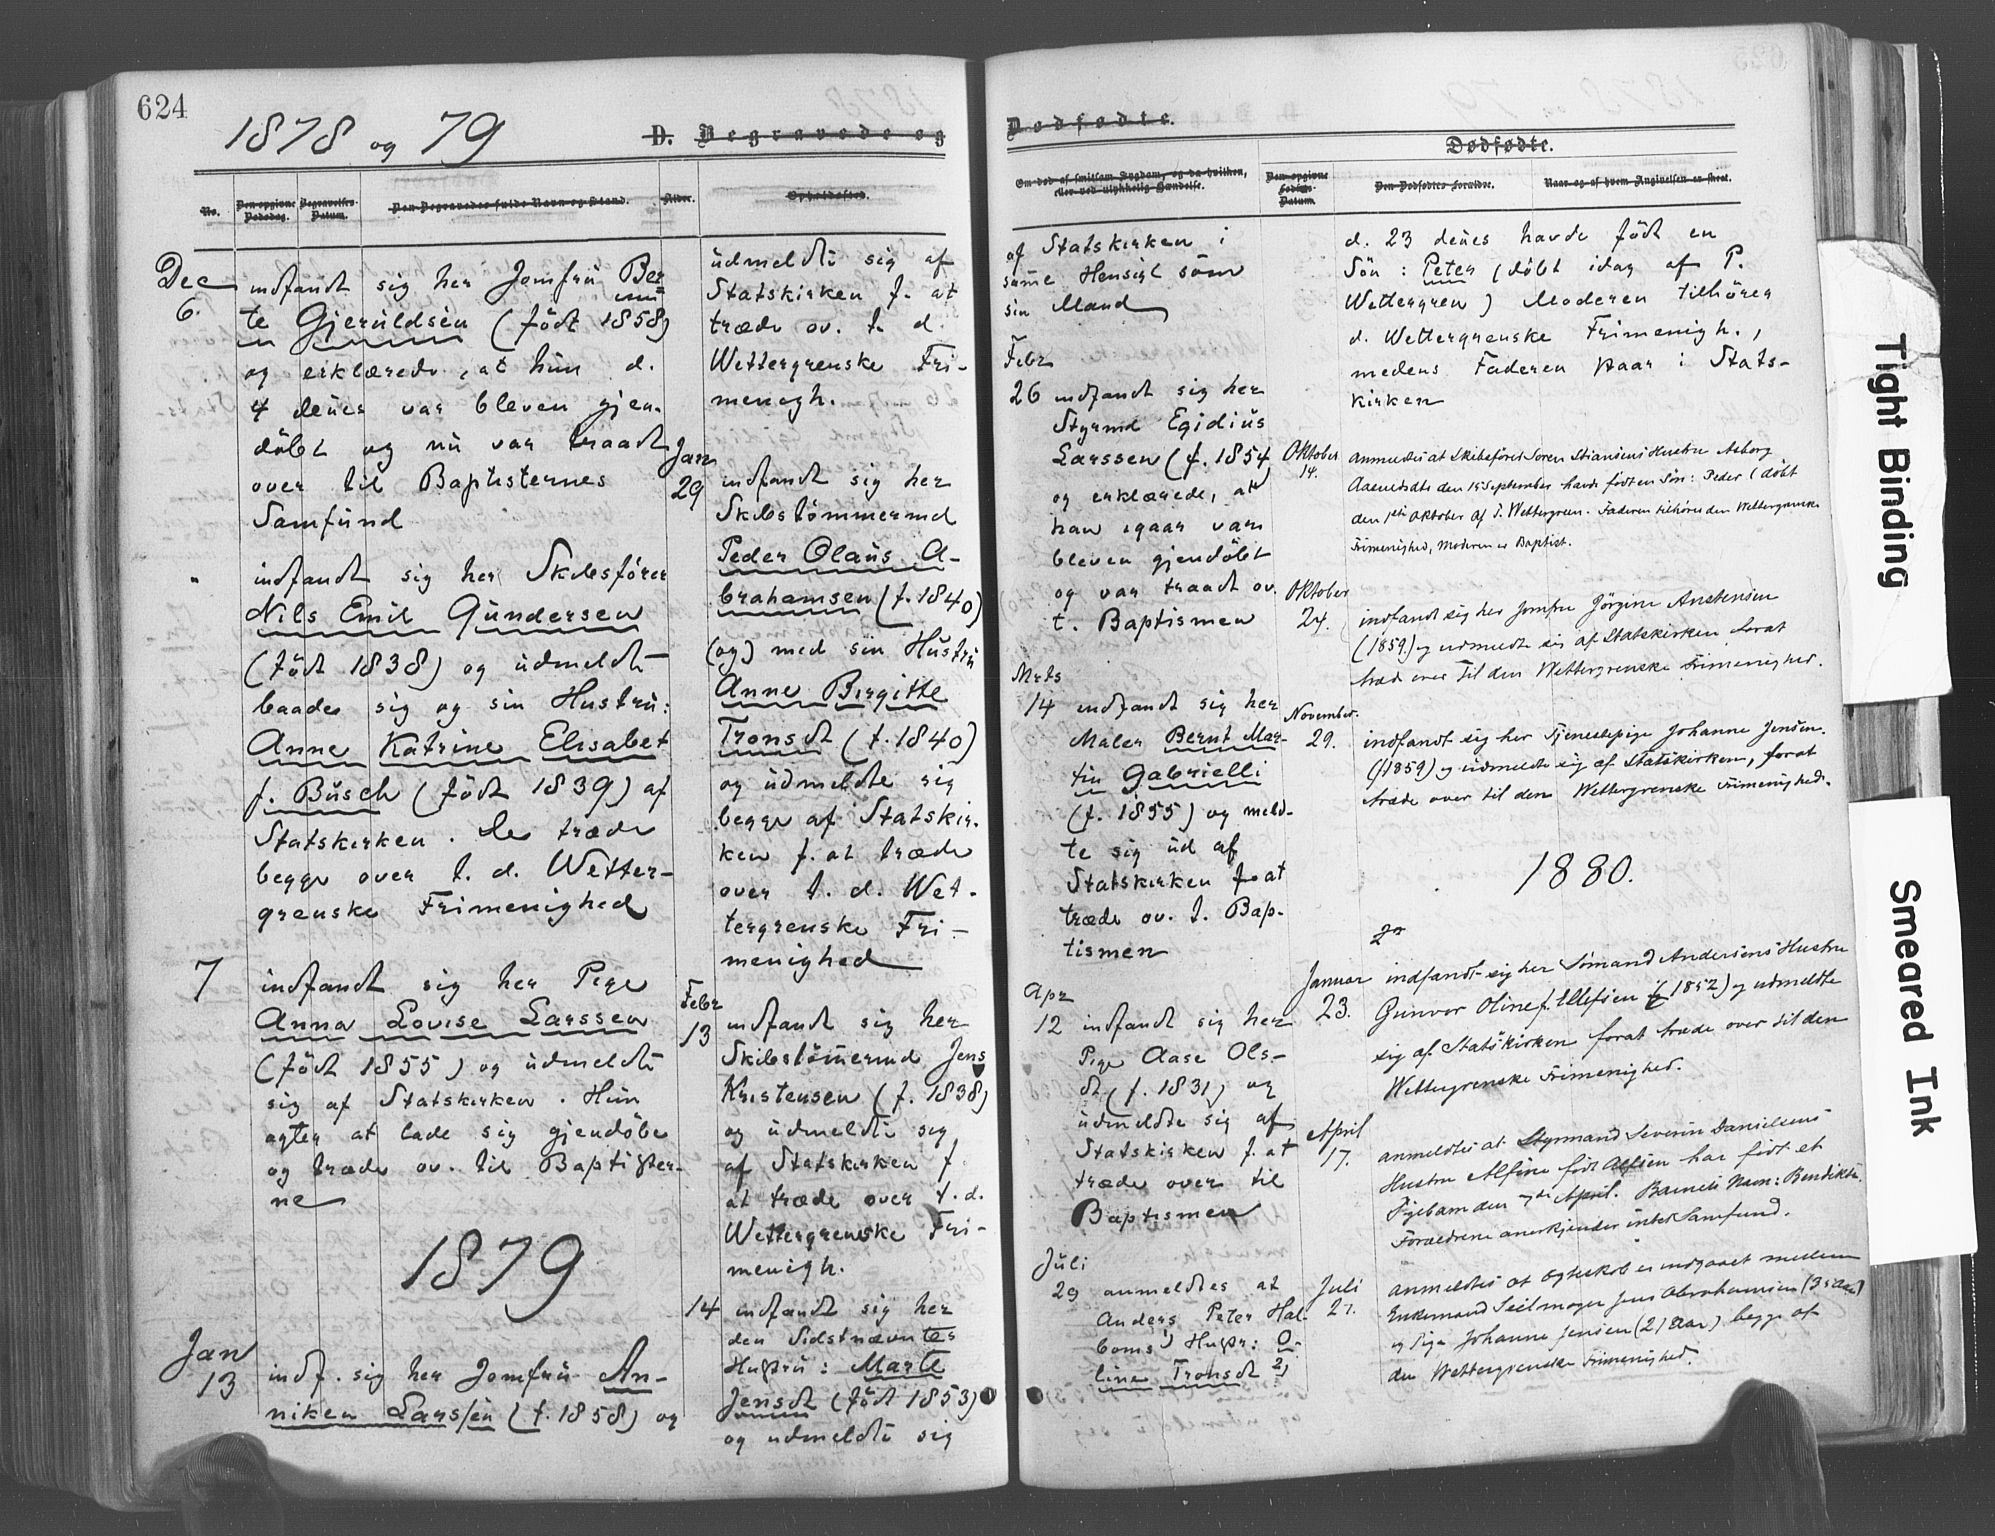 624
1878 og 79
D. Begravede og
No.
Den opgivne Dødsdag.
Begravelses-Datum.
Den Begravedes fulde Navn og Stand.
Alder.
Opholdssted.
Dec
6. indfandt sig her Jomfru Ber
nu
te Gjeruldsen (født 1858)
og erklærede, at hun d.
4 denes var bleven gjen-
döbt og nu var traadt
over til Baptisternes
Samfund
" indfandt sig her Skibsfører
Nils Emil Gundersen
(født 1838) og udmeldte
baade sig og sin Hustru:
Anne Katrine Elisabet
f. Busch (født 1839) af
Statskirken. De træde
begge over t. d. Wetter-
grenske Frimenighed
7 indfandt sig her Pige
Anna Lovise Larssen
(født 1855) og udmeldte
sig af Statskirken. Hun
agter at lade sig gjendøbe
og træde ov. til Baptister-
ne
1879
Jan
13 indf. sig her Jomfru An-
niken Larssen (f. 1858) og
udmeldte sig af
Statskirken f. at
træde ov. t. d.
Wettergrenske Fri-
menigh.
Jan
29 indfandt sig her
Skibstømmermd
Peder Olaus A-
brahamsen (f. 1840)
(og) med sin Hustru
Anne Birgitte
Tronsdt (f. 1840)
og udmeldte sig
begge af Statskir-
ken f. at træde
over t. d. Wet-
tergrenske Fri-
menighed
Febr
13 indfandt sig her
Skibstømermd Jens
Kristensen (f. 1838)
og udmeldte sig
af Statskirken f.
at træde over t. d.
Wettergrenske Fri-
menigh.
14 indfandt sig her
den Sidstnævntes
Hustru: Marte
Jensdt (født 1853)
og udmeldte sig
Dødfødte.
Om død af smitsom Sygdom, og da hvilken,
eller ved ulykkelig Hændelse.
Dødfødte.
Den opgivne Fødsels-Datum.
Den Dødfødtes Forældre.
Naar og af hvem Angivelsen er skeet.
af Statskirken i
samme Hensigt som
sin Mand
Febr
26 indfandt sig her
Styrmd Egidius
Larssen (f. 1854)
og erklærede, at
han igaar var
bleven gjendöbt
og var traadt ov.
t. Baptismen
Mrts
14 indfandt sig her
Maler Bernt Mar-
tin Gabrielli
(f. 1855) og meld-
te sig ud af
Statskirken f. at
træde ov. t. Bap-
tismen
Apr
12 indfandt sig her
Pige Aase Ols-
dt (f. 1831) og
udmeldte sig af
Statskirken f. at
træde over til
Baptismen
Juli
29 anmeldtes at
Anders Peter Hal-
boms Hustr: O-
line Tronsdt
d. 23 denes havde født en
Sön: Peter (døbt idag af P.
Wettergren) Moderen tilhører
d. Wettergrenske Frimenigh.,
medens Faderen staar i Stats-
kirken
Oktober
14. anmeldtes at Skibsfører Soren Stiansens Hustru Aaborg
den 15 September havde født en Sön: Peder (døbt
den 1ste Oktober af P. Wettergreen. Faderen tilhører den Wettergrenske
Frimenighed, Moderen er Baptist.
Oktober
24. indfandt sig her Jomfru Jörgine Anstensen
(1859) og udmeldte sig af Statskirken forat
træde over til den Wettergrenske Frimenighed.
November
29. indfandt sig her Tjenestepige Johanne Jensen
(f 1859) og udmeldte sig af Statskirken, forat
træde over til den Wettergrenske Frimenighed.
1880.
Januar
23. indfandt sig her Sömand Andersens Hustru
Gunvor Oline f. Ellefsen (f 1852) og udmeldte
sig af Statskirken forat træde over til den
Wettergrenske Frimenighed.
April
17. anmeldtes at Styrmand Severin Danielsens
Hustru Alfine født Alfsen har födt et
Pigebarn den 7de April. Barnets Navn: Bendikte
Forældrene anerkjender intet Samfund.
Juli
27. anmeldtes at Ægteskab er indgaaet mellem
Enkemand Seilmager Jens Abrahamsen (35 Aar)
og Pige Johanne Jensen (21 Aar) begge af
den Wettergrenske Frimenighed.
Tight Binding
Smeared Ink